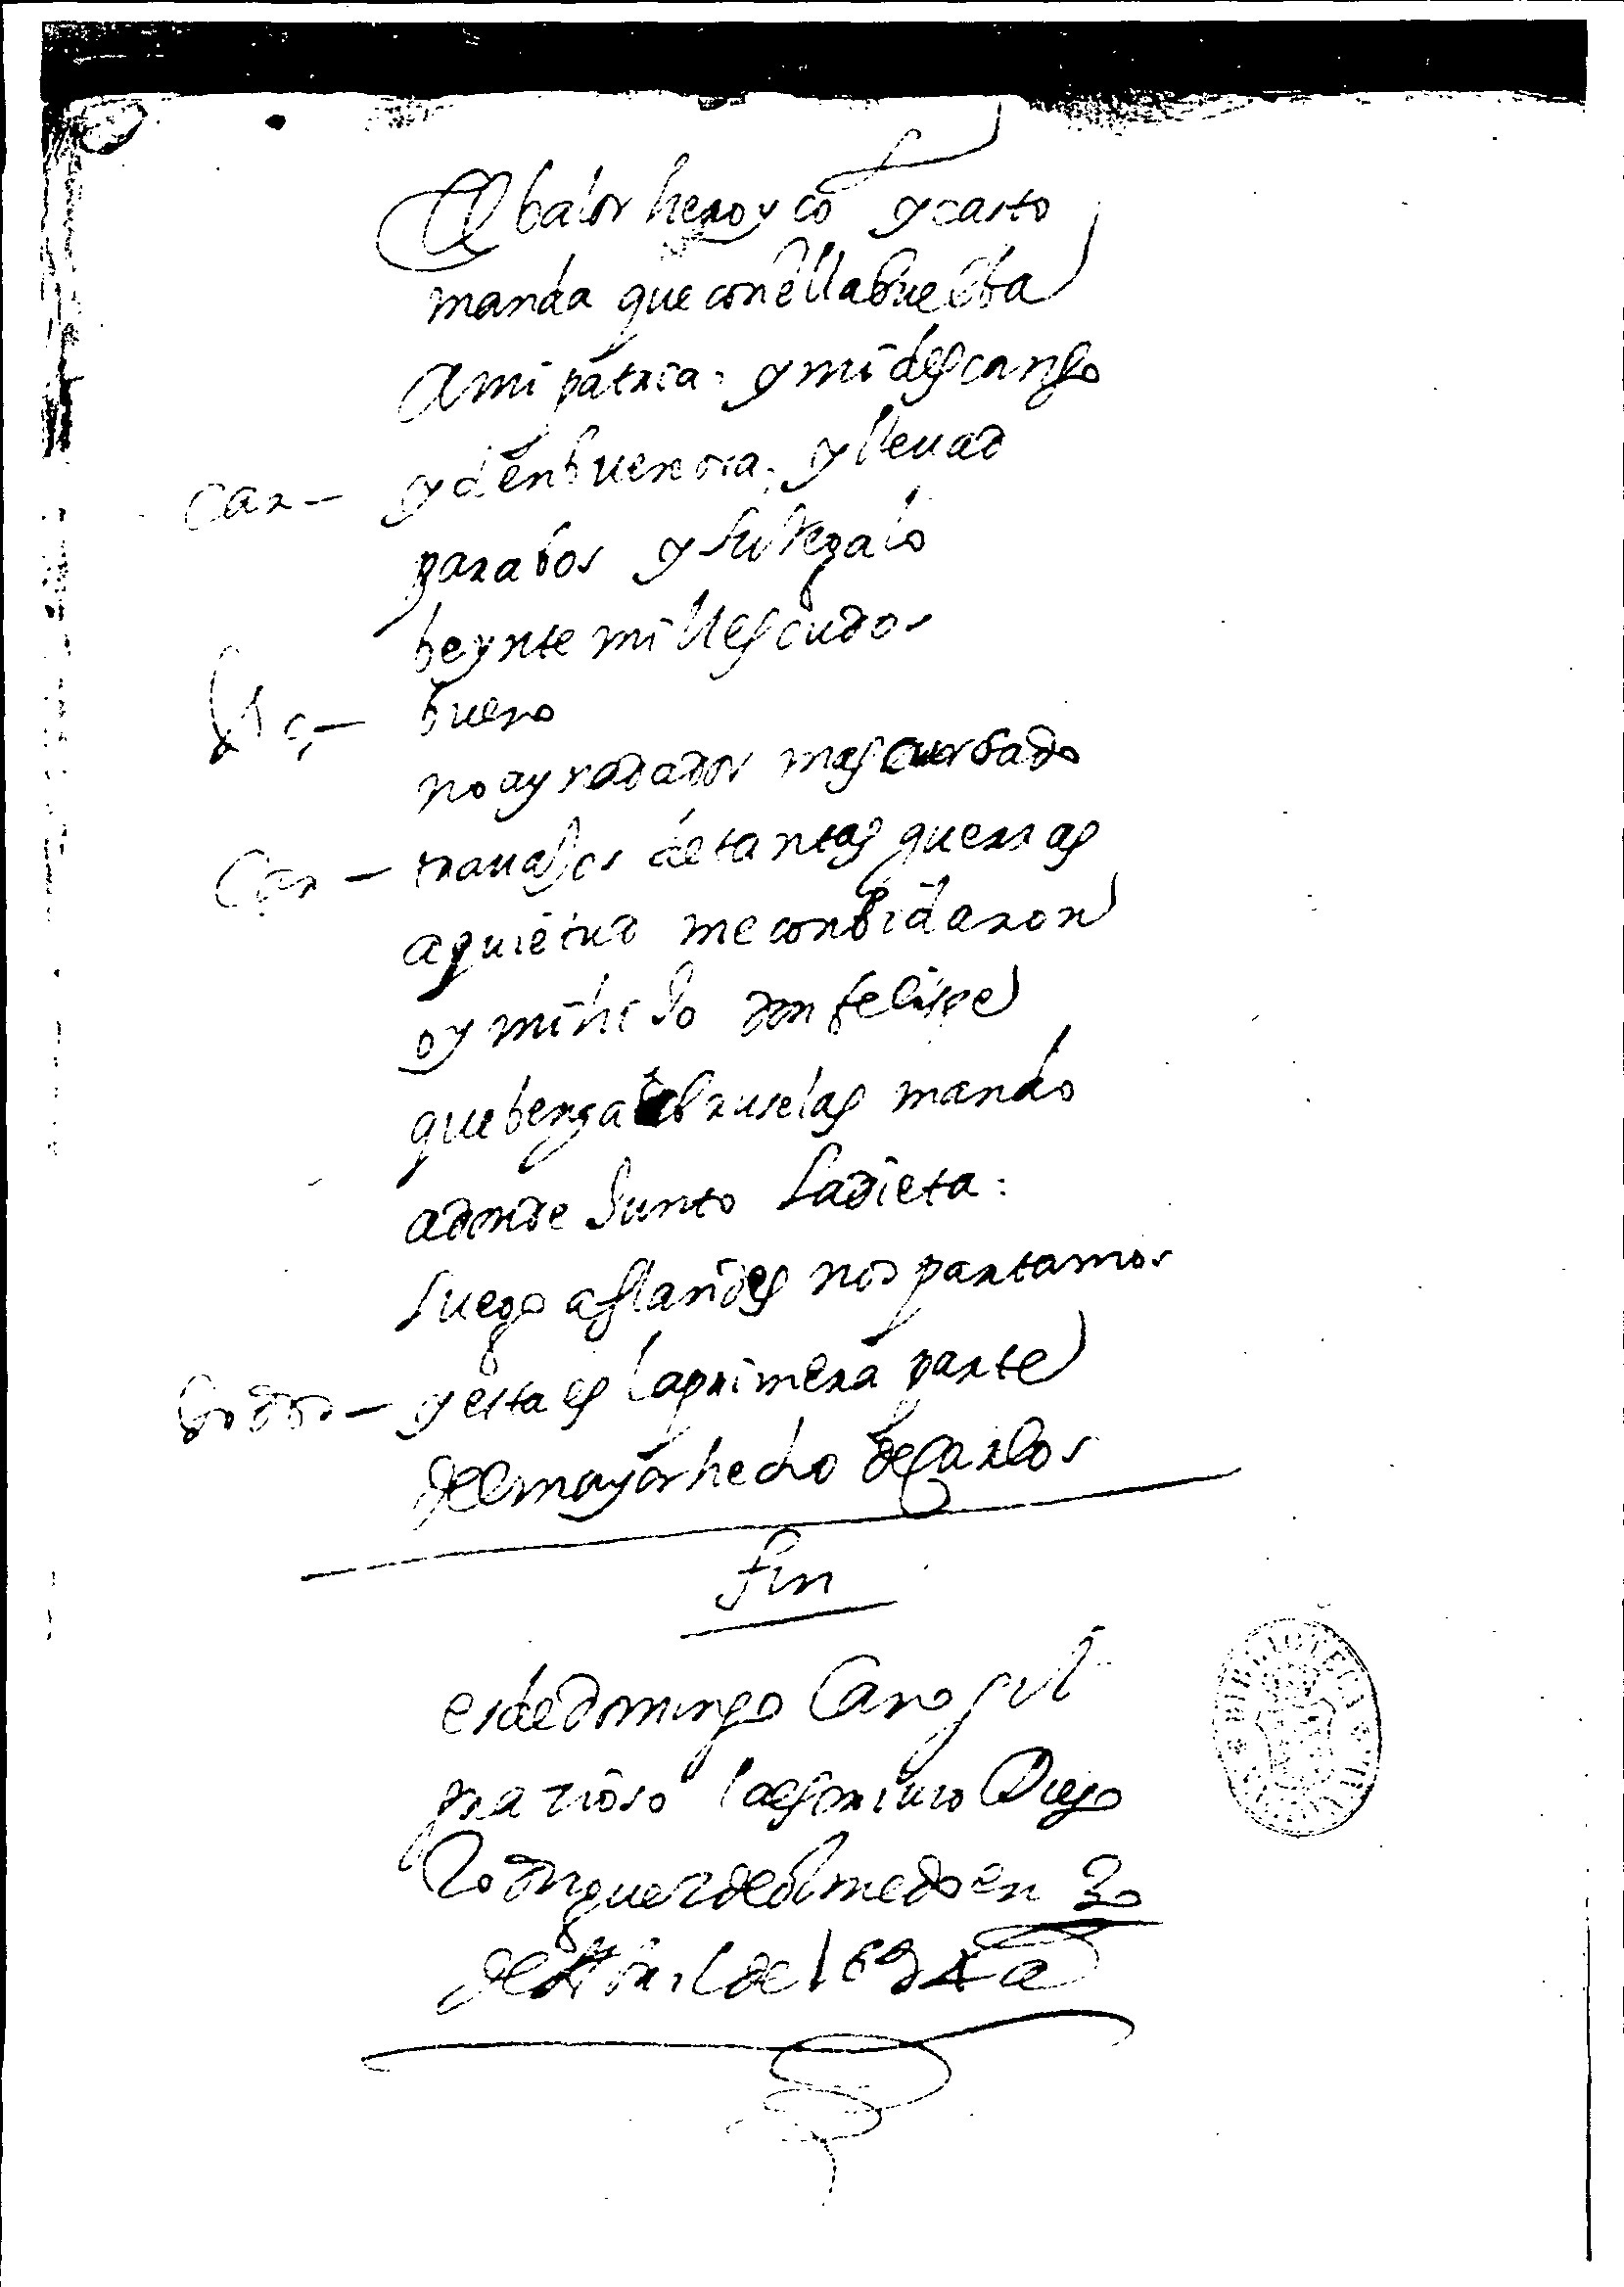 El balor heroyco y casto
manda que con ella buelba
a mi patria. y mi descanso
Car— yd en buen ora. y llevad
para bos y su regalo
beynte mill escudos
bueno
no ay nadador mas
Car— trauajos de tantas guerras
a quietud me conbidaron
oy mi hijo don felipe
que benga a bruselas mando
adonde junto la dieta:
luego a flandes nos partamos
todos— y esta es la primera parte
del mayor hecho de Carlos
fin
es de domingo Cano gil
grazioso la escriuio Diego
Rodriguez de olmedo en 30
de Abril de
BIBLIOTECA